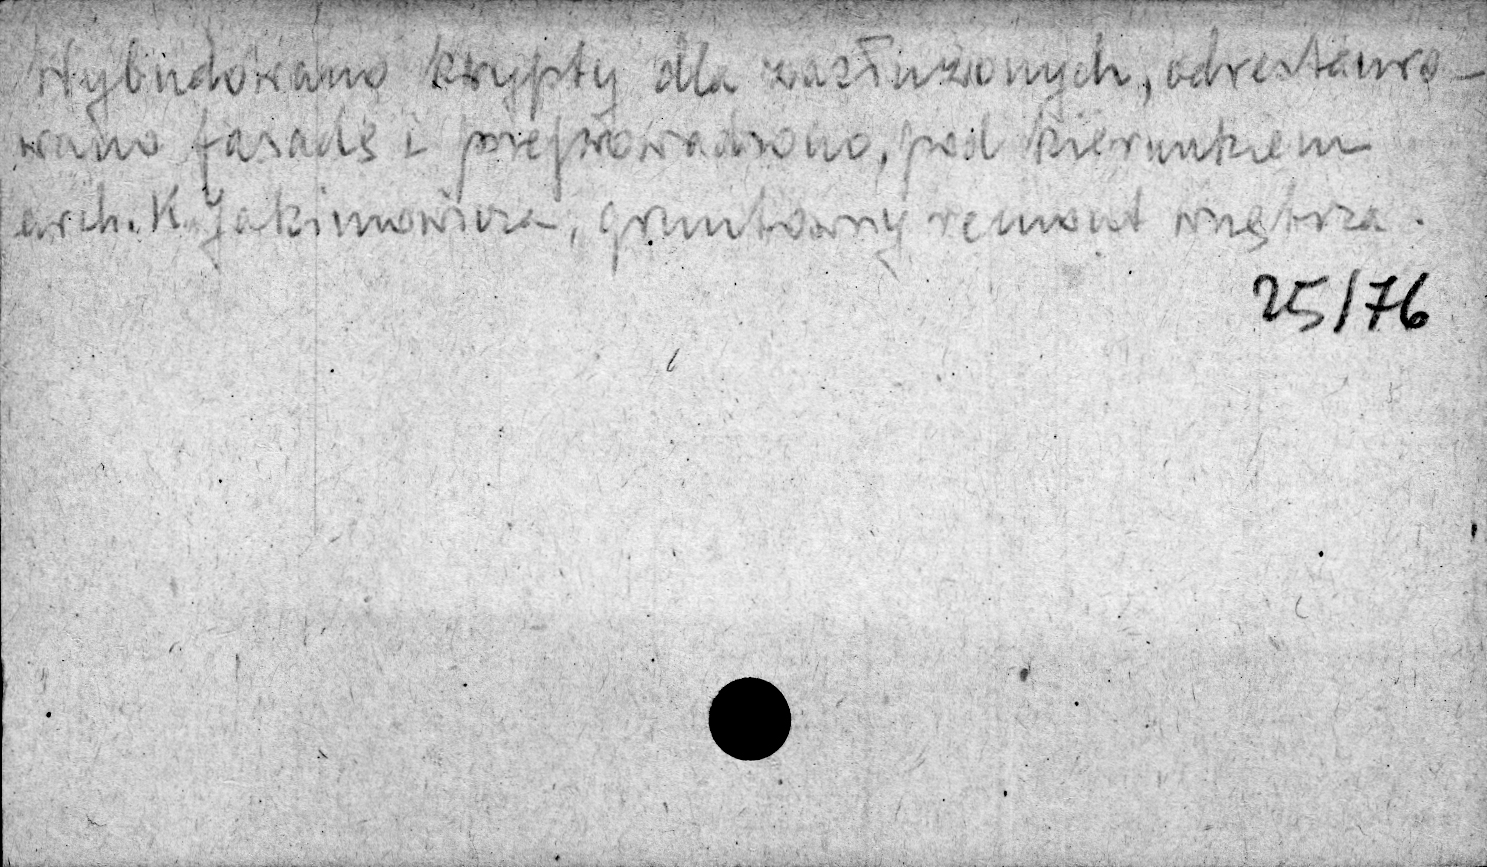 Wybudowano krypty dla zasłużonych, odrestauro-
wano fasadę i przeprowadzono, pod kierunkiem
arch. K. Jakimowicza, gruntowny remont wnętrza.
25/76